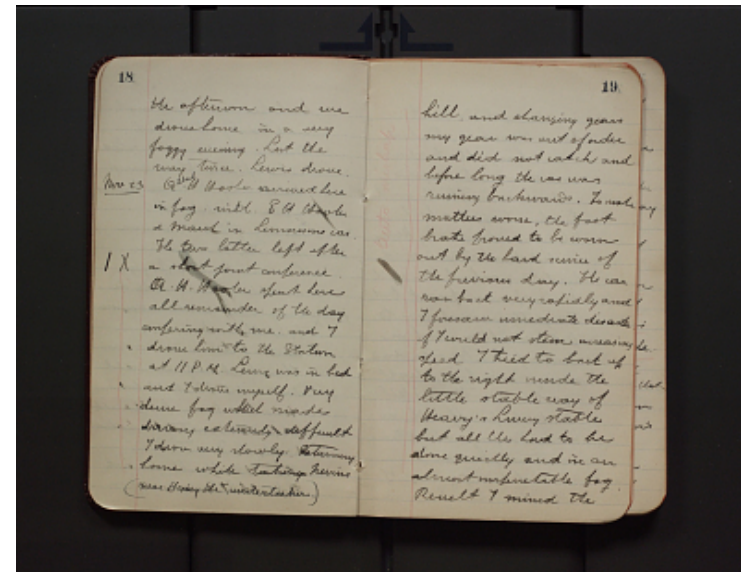 18
the afternoon and we
drove home in a very
foggy evening. Lost the
way twice. Lewis drove.
Nov 23
arrived here
in fog with E H
& March in Limousine car.
The two latter left after
a short joint conference.
A. H. spent here
all remainder of the day
confering with me. and I
drove him to the Station
at 11 P.M. was in bed
and I drove myself. Very
dense fog which made
driving extremely difficult
I drove very slowly returning
home while
(near the undertaker)
1 X
19
hill, and changing gears
my gear was out of order
and did not catch and
before long the car was
running backwards. To make
matters worse, the foot
brake proved to be worn
out by the hard service of
the previous day. The car
ran back very rapidly and
I foresaw immediate disaster
if I could not stem increasing
speed. I tried to back up
to the right inside the
little stable way of
Livery Stable
but all this had to be
done quickly and in an
almost impenetrable fog.
Result I missed the